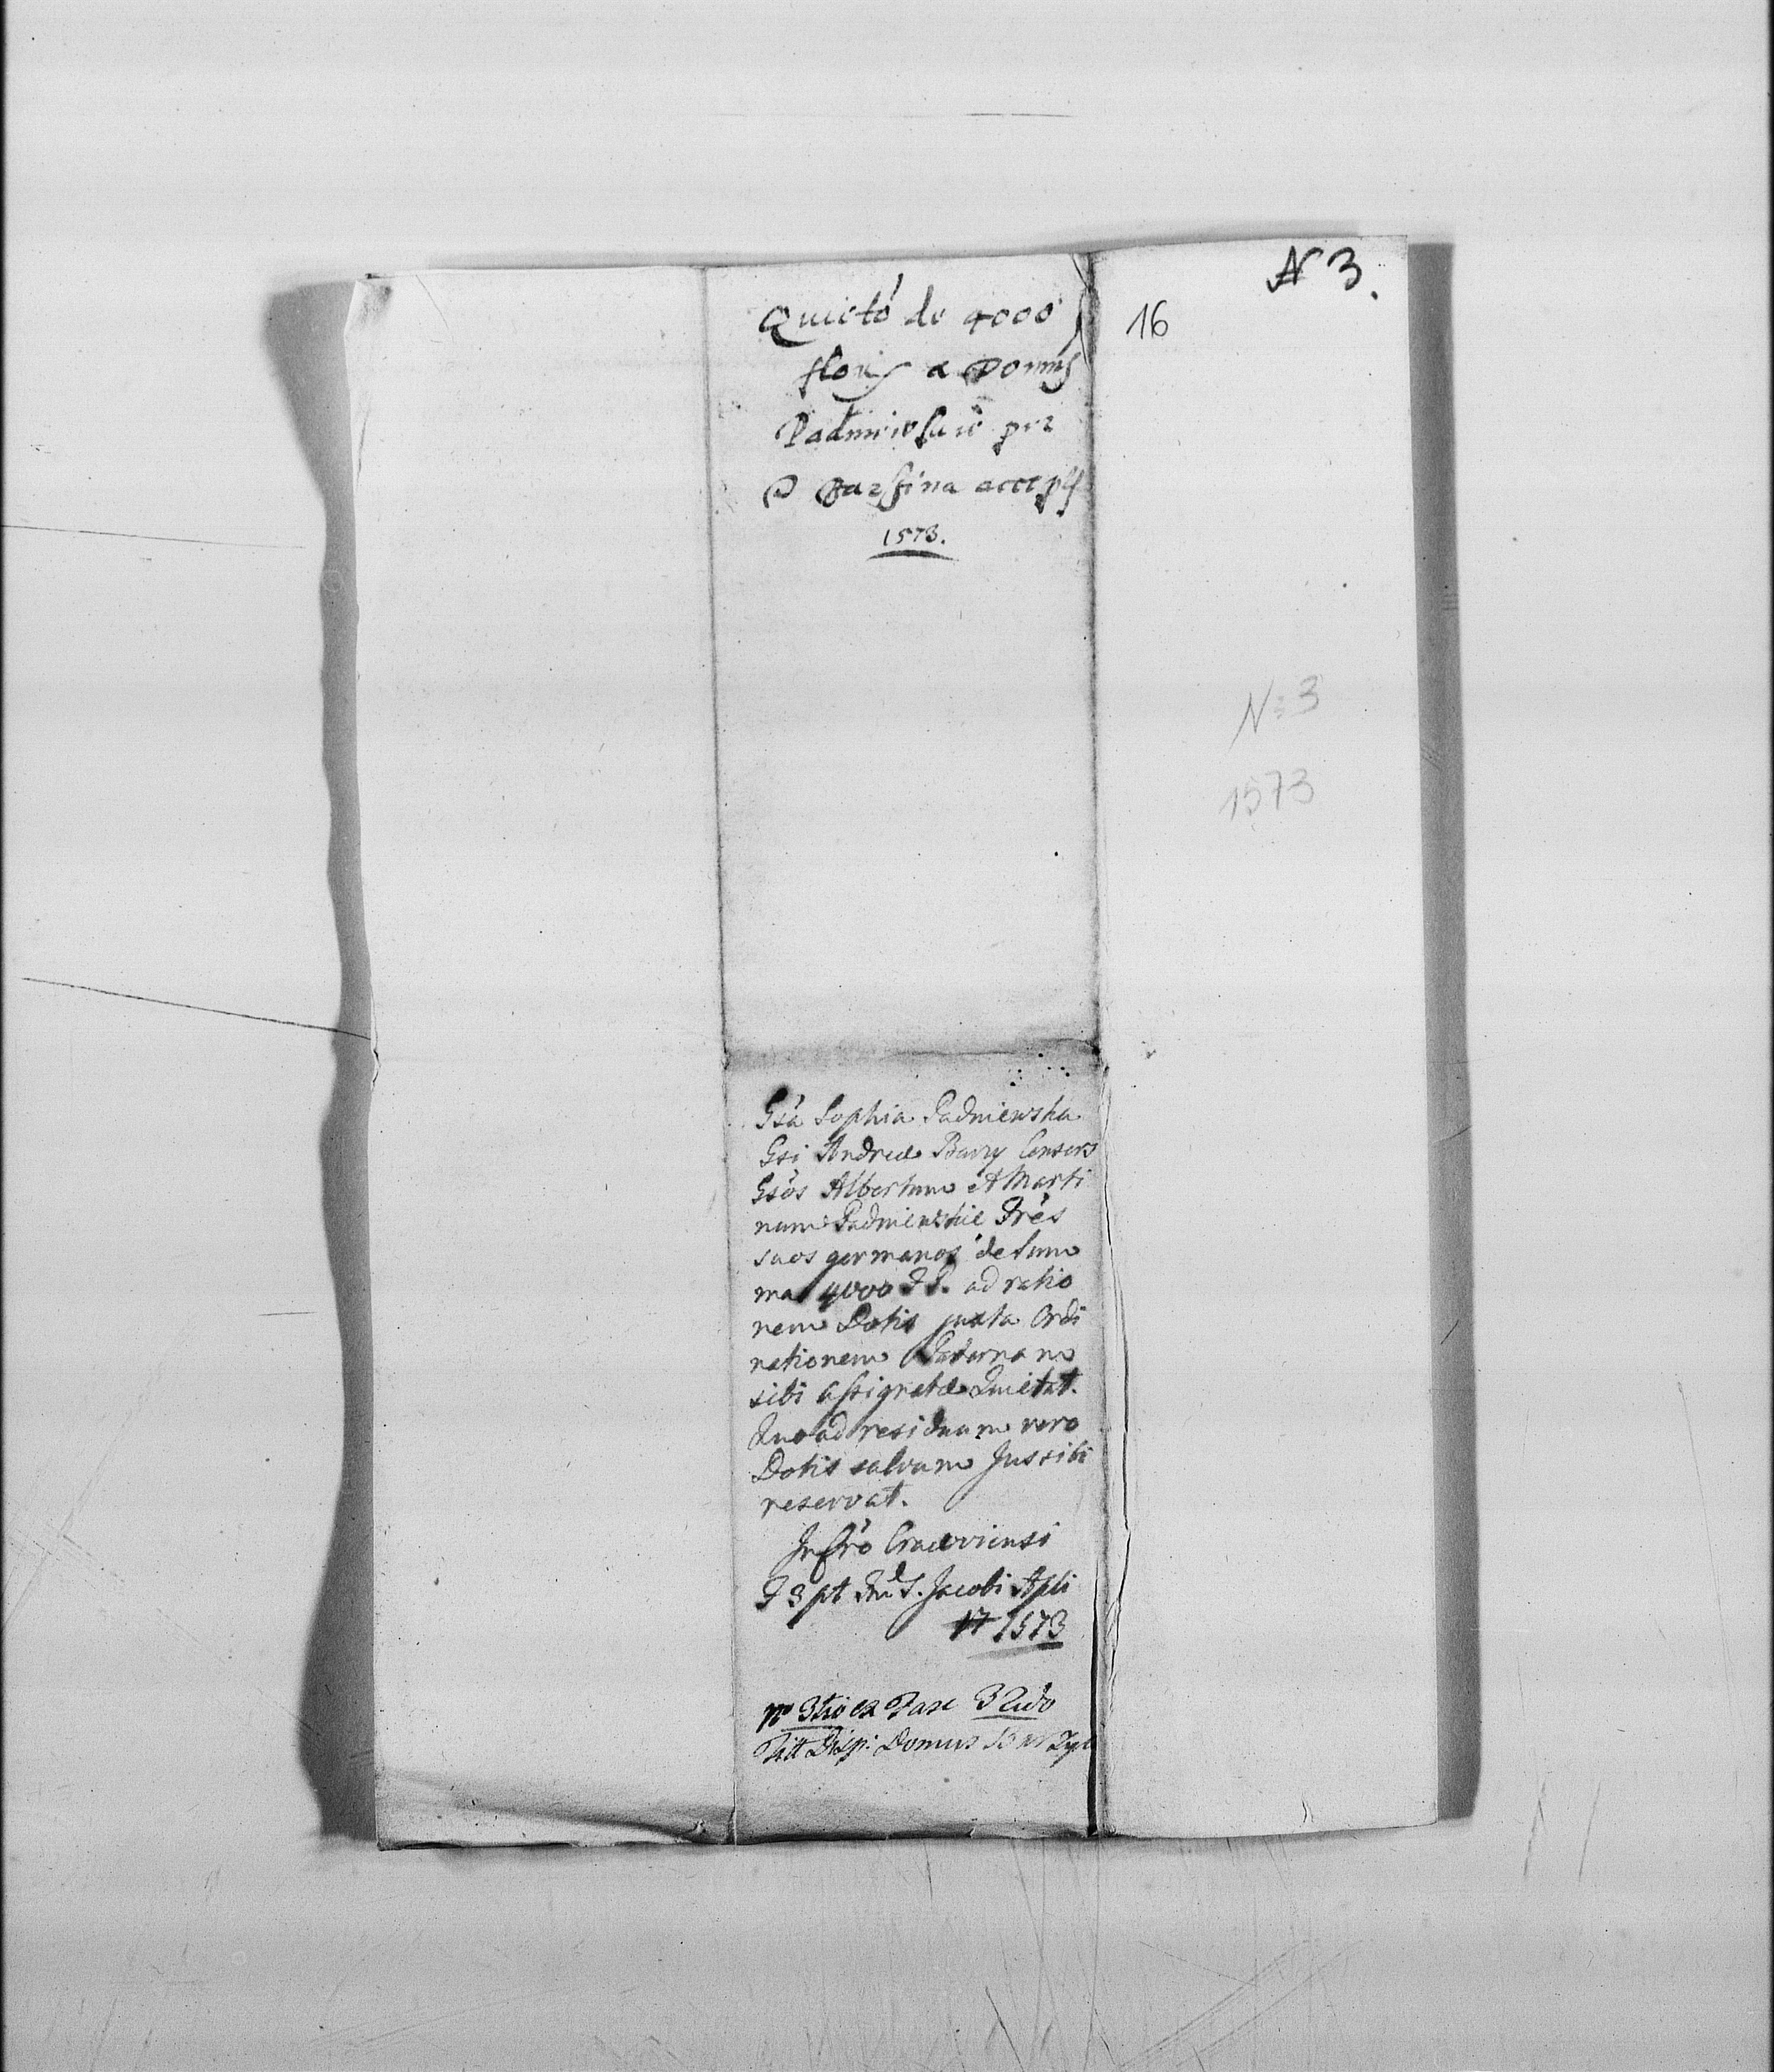 N 3.
16
Quietó de 4000
floris a Domis
Padnieiosciö per
D Barssina accepts
1573.
N: 3
1573
Gsa Sophia Padniewska
Gsi Andreæ Barzy Consors
Gsos Albertum et Marti
num Padniewskie Fres
suos germanos de sum
ma 4000 Fl. ad ratio
nem Dotis juxta Ordi
nationem Paternam
sibi assignatæ Quietat.
Quoad residuam vero
Dotis salvum Jus sibi
reservat.
In Cro Cracoviensi
F 3 pt Fm S. Jacobi Apli
17 1573
Nro 3tio ex Fasc 32do
Titt Disp: Domus Barzyc